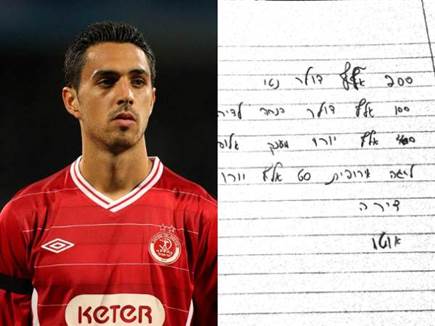 KETER
200 אלף דולר נטו
100 אלף דולר הנחה לדירה
אלף יורו מענק אליפות
ליגה אירופית 50 אלף יורו
דירה
אוטו